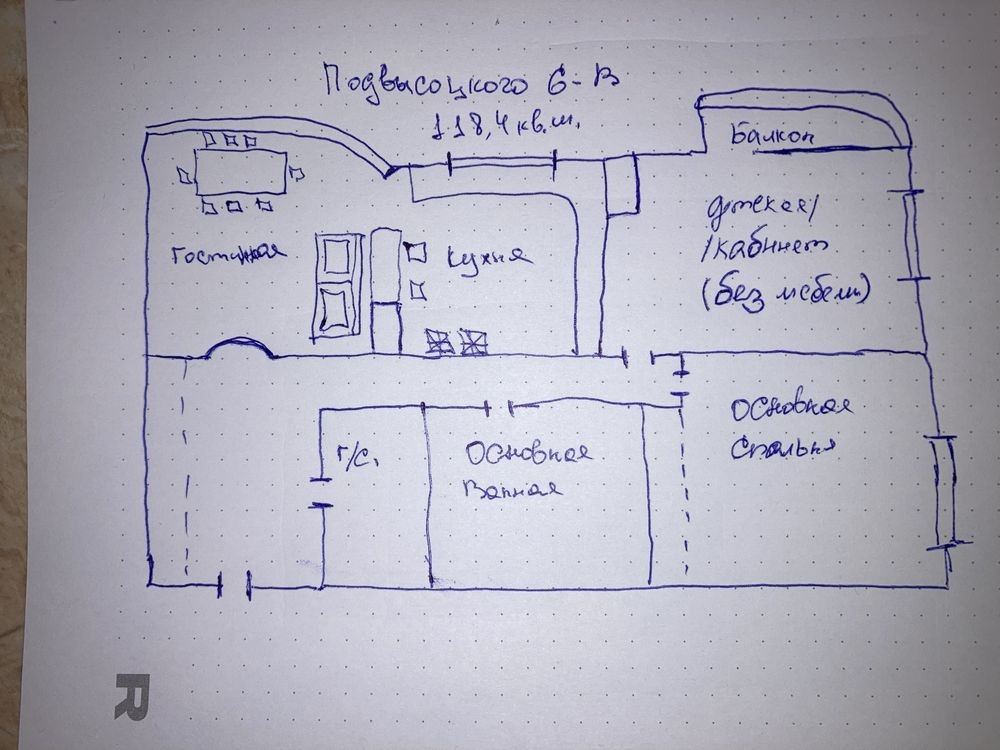 Подвысоцкого 6-В
118,4 кв.м.
Балкон
Гостиная
Кухня
детская/
/кабинет
(без мебели)
Г/С.
Основная
Ванная
Основная
Спальня
R